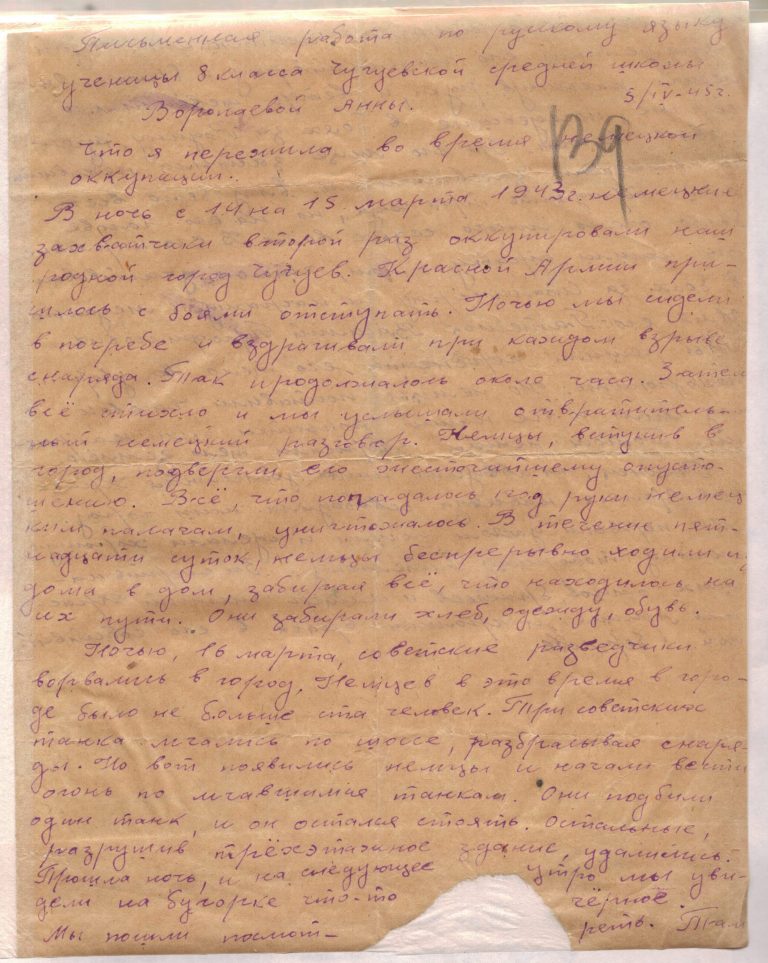 Письменная работа по русскому языку
ученицы 8 класса Чугуевской средней школы
Воропаевой Анны.
5/IV-45г.
139
Что я пережила во время немецкой
оккупации.
В ночь с 14 на 15 марта 1943г. немецкие
захватчики второй раз оккупировали наш
родной город Чугуев. Красной Армии при-
шлось с боями отступать. Ночью мы сидели
в погребе и вздрагивали при каждом взрыве
снаряда. Так продолжалось около часа. Затем
всё стихло и мы услышали отвратитель-
ный немецкий разговор. Немцы, вступив в
город, подвергли его жесточайшему опусто-
шению. Всё, что попадалось под руки немец
ким палачам, уничтожалось. В течение пят-
надцати суток, немцы беспрерывно ходили из
дома в дом, забирая всё, что находилось на
их пути. Они забирали хлеб, одежду, обувь.
Ночью, 16 марта, советские разведчики
ворвались в город. Немцев в это время в горо-
де было не больше ста человек. Три советских
танка мчались по шоссе, разбрасывая снаря-
ды. Но вот появились немцы и начали вести
огонь по мчавшимся танкам. Они подбили
один танк, и он остался стоять. Остальные,
разрушив трёхэтажное здание, удалились.
Прошла ночь, и на следующее утро мы уви-
дели на бугорке что-то чёрное.
Мы пошли посмот- реть. Там